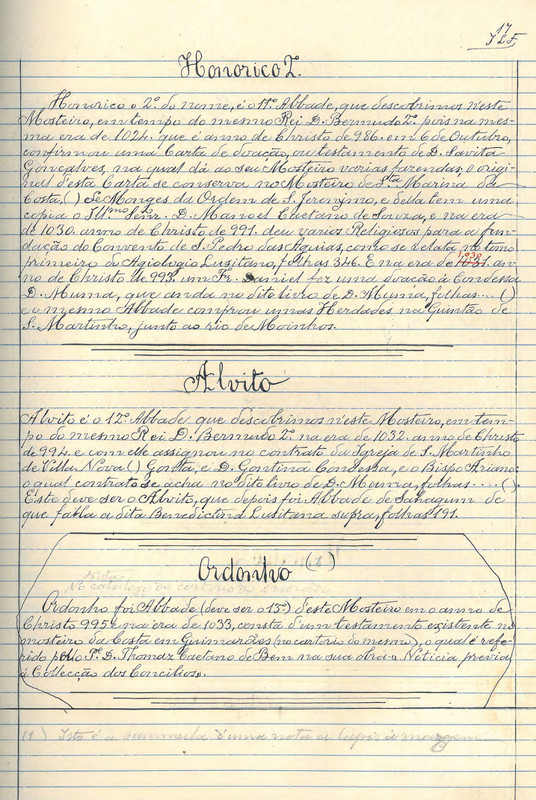 17
Honorico 2.
Honorico o 2º do nome, é o 11º Abbade, que descobrimos n'este
Mosteiro, em tempo do mesmo Rei D. Bermudo 2º pois na mes-
ma era de 1024. que é anno de Christo de 986. em 6 de Outubro,
confirmou uma Carta de doação, ou testamento de D. Savita
Gonçalves, na qual dá ao seu Mosteiro varias fazendas, o origi-
nal d'esta Carta se conserva no Mosteiro de Sta Marina da
Costa, ( ) de Monges da Ordem de S. Jeronymo, e d'ella tem uma
copia o Illmo Senr. D. Manoel Caetano de Souza, e na era
de 1030. anno de Christo de 991. deu varios Religiosos para a fun-
dação do Convento de S. Pedro das Aguias, como se relata no tomo
primeiro do Agiologio Lusitano, folhas 346. E na era de 1031. an-
no de Christo de 993. um Fr. Daniel fez uma doação á Condessa
D. Muma, que anda no dito livro de D. Muma, folhas.... ( )
e o mesmo Abbade comprou umas Herdades na Quintão de
S. Martinho, junto ao rio de Moinhos.
Alvito
Alvito é o 12º Abbade que descobrimos n'este Mosteiro, em tem-
po do mesmo Rei D. Bermudo 2º na era de 1032. anno de Christo
de 994. e com elle assignou no contrato da Igreja de S. Martinho
de Villa Nova ( ) Gonta, e D. Gontina Condessa, e o Bispo Ariano:
o qual contrato se acha no dito livro de D. Muma, folhas..... ( ).
Este deve ser o Alvito, que depois foi Abbade de Sahagum de
que falla a dita Benedictina Lusitana supra, folhas 191.
Ordonho (1)
Ordonho foi Abbade (deve ser o 13º) d'este Mosteiro em o anno de
Christo 995 e na era de 1033, consta d'um testamento existente no
mosteiro da Costa em Guimarães (no cartorio do mesmo), o qual é refe-
rido pelo Pe. D. Thomaz Caetano de Bem na sua obra - Noticia previa
á Collecção dos Concilios.
(1) Isto é a summula d'uma nota a lapis á margem